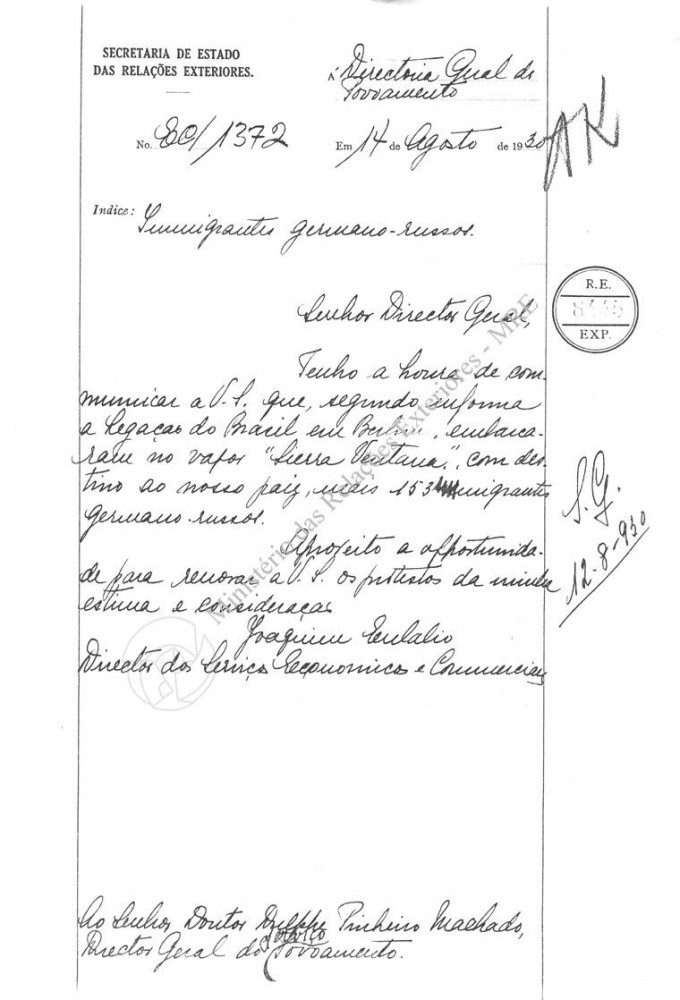 SECRETARIA DE ESTADO
DAS RELAÇÕES EXTERIORES.
Á Directoria Geral de
Povoamento
No. EC/1372
Em 14 de Agosto de 1930
Indice: Immigrantes germano-russos.
R.E.
EXP.
Senhor Director Geral,
Tenho a honra de com-
municar a V. S. que, segundo informa
a Legação do Brasil em Berlim, embarca-
ram no vapor "Sierra Ventana", com des-
tino ao nosso paiz, mais 153 immigrantes
germano-russos.
Aproveito a opportunida-
de para renovar a V. S. os protestos da minha
estima e consideração
Joaquim Eulalio
Director dos Serviços Economicos e Commerciaes
S. G.
12-8-930
Ministério das Relações Exteriores - MRE
Ao Senhor Doutor Dulphe Pinheiro Machado,
Director Geral do Serviço
Povoamento.